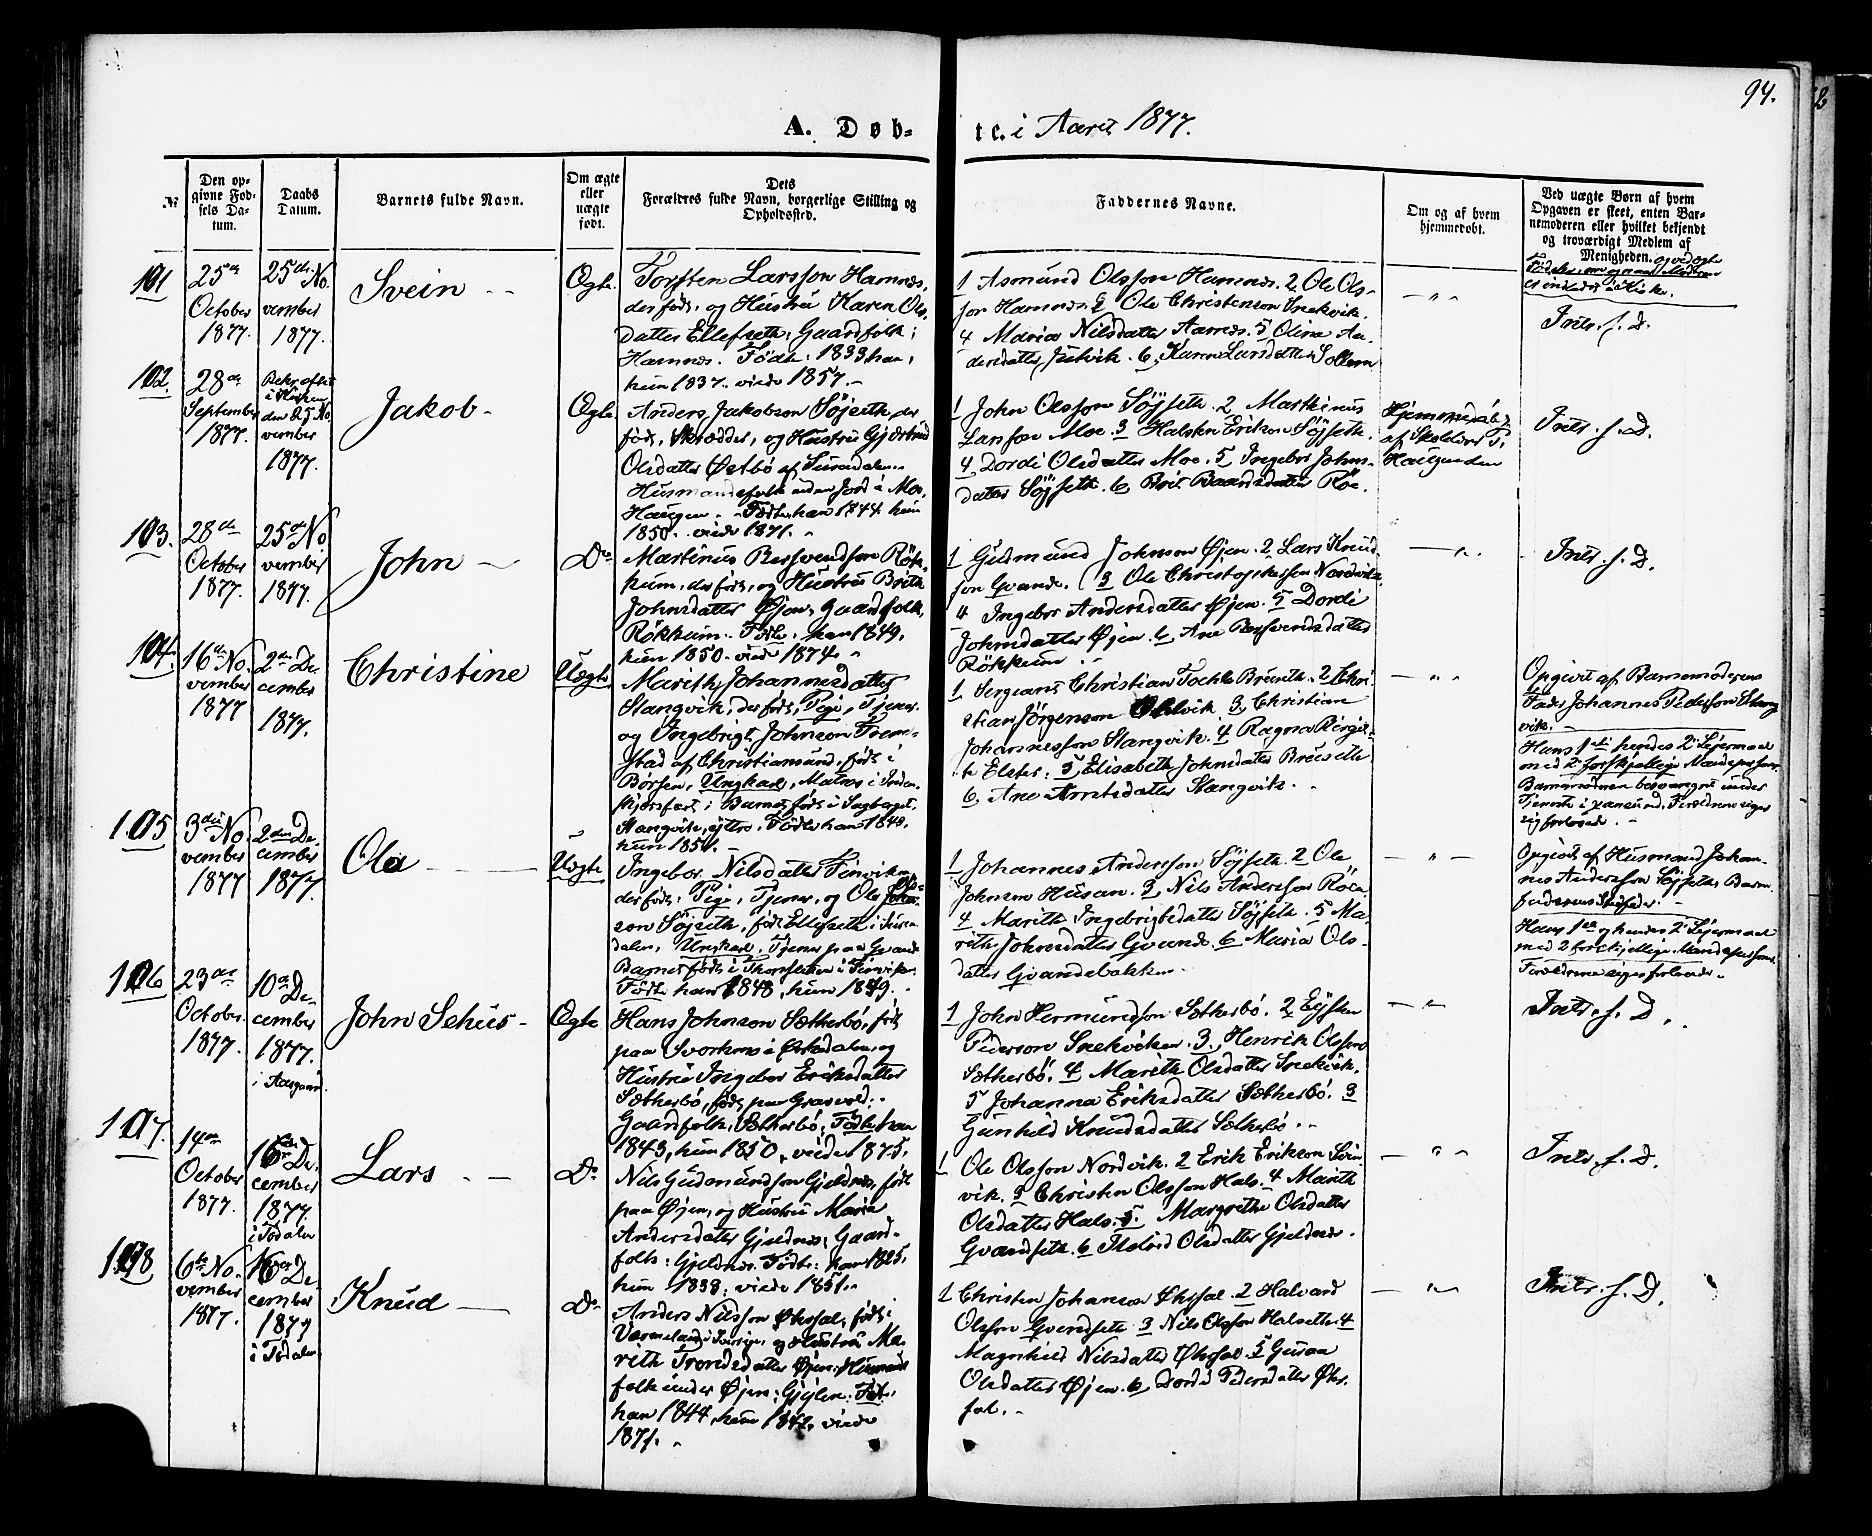 94.
A. Døb-
te. i Aaret 1877.
№
Den op-
givne Fød-
sels Da-
tum.
Daabs
Datum.
Barnets fulde Navn.
Om ægte
eller
uægte
født.
Dets
Forældres fulde Navn, borgerlige Stilling og
Opholdssted.
Faddernes Navne.
Om og af hvem
hjemmedøbt.
Ved uægte Børn af hvem
Opgaven er skeet, enten Bar-
nemoderen eller hvilket bekjendt
og troværdigt Medlem af
Menigheden.
101
25de
October
1877.
25de No
vember
1877.
Svein
Ægte
Torsten Larsson Hamnes,
der født, og Hustru Karen Ols-
datter Ellefseth: Gaardfolk:
Hamnes. Födte: 1833 han,
hun 1837. viede 1857.
1 Asmund Olsson Hamnes. 2 Ole Ols-
son Hamnes. 3 Ole Christenson Snekvik.
4 Maria Nilsdatter Aarnes. 5 Olina An-
dersdatter Julvik. 6. Karen Larsdatter Solem
Intr. f. D.
102.
28de
September
1877.
i Kirken
den 25 No
vember
1877.
Jakob
Ægte
Anders Jakobson Söjseth, der
født, Skrædder, og Hustru Gjertrud
Olsdatter Østbö af Surendalen.
Husmandsfolk uden Jord i Moe
Haugen. Födte han 1844 hun
1850. viede 1871.
1 John Olsson Söjseth. 2 Martinus
Larsson Moe. 3 Halsten Erikson Söjseth.
4 Dordi Olsdatter Moe. 5 Ingebor Johns-
datter Söjseth. 6 Brit Baardsdatter Röe.
Hjemmedöbt
af Skolelærer T.
Haugen
Intr. f. D.
103.
28de
October
1877.
25de No
vember
1877.
John
Do
Martinus Bersvendson Rök-
kum, der født, og Hustru Brith
Johnsdatter Øjen, Gaardfolk,
Rökkum. Födte: han 1849.
hun 1850. viede 1874.
1 Gudmund Johnson Øjen. 2 Lars Knud-
son Qvande. 3 Ole Christophersson Nordvik.
4 Ingebor Andersdatter Øjen. 5 Dordi
Johnsdatter Øjen. 6. Ane Bersvendsdatter
Rökkum
Intr. f. D.
104.
16de No
vember
1877
2den De
cember
1877.
Christine
Uægte
Marith Johannesdatter
Stangvik, der født, Pige, Tjener.
og Ingebrigt Johnson
af Christiansund, født i
Börsen, Ungkarl, Matros i Inden-
skjersfart. Barnet født i
Stangvik, Födte han 1848.
hun 1851.
1 Sergeant Christian Brüseth. 2 Chri-
stian Jörgenson 3. Christian
Johannesson Stangvik. 4 Ragna
Elster. 5 Elisabeth Johnsdatter Brüseth
6. Ane Arntsdatter Stangvik.
Opgivet af Barnemoderens
Fader Johannes Pederson Stang
vik.
Hans 1ste hendes 2det Lejermaal
med 2 forskjellige Mandspersoner.
Barnemoderen besvangret under
Tjeneste i Forældrene siges
ej forlovede.
105
3die No
vember
1877
2den De-
cember
1877
Ola
Uægte
Ingebor Nilsdatter Finvik,
der født, Pige, Tjener, og Ole
son Söjseth, født Ellefseth i Suren
dalen, Ungkarl, Tjener paa Qvande
Barnet født i
Födte han 1848, hun 1849.
1 Johannes Andersson Söjseth. 2 Ole
Johnson Husan. 3. Nils Andersson Röen
4 Marith Ingebrigtsdatter Söjseth. 5 Ma-
rith Johnsdatter Qvande. 6 Maria Ols-
datter Qvandebakken.
Opgivet af Husmand Johan-
nes Andersson Söjseth, Barne
Hans 1ste og hendes 2det Lejermaal
med 2 forskjellige Mandspersoner.
Forældrene siges forlovede.
106
23de
October
1877.
10de De-
cember
1877.
John Sehus
Ægte
Hans Johnson Sætherbö, født
paa Svorkmo i Orkedalen, og
Hustru Ingebor Eriksdatter
Sætherbö, født paa Grasvold.
Gaardfolk, Sætherbö, Födte han
1843, hun 1850, viede 1875.
1 John Hermundson Sætherbö. 2 Eysten
Pederson Snekviken. 3. Henrik Olsson
Sætherbö. 4 Marith Olsdatter Snekvik.
5 Johanna Eriksdatter Sætherbö. 3
Gunhild Knudsdatter Sætherbö.
Intr. f. D.
107.
14de
October
1877.
16de De-
cember
1877
i Todalen
Lars
Do
Nils Gudmundson Gjeldnes, født
paa Øjen, og Hustru Maria
Andersdatter Gjeldnes, Gaard-
folk: Gjeldnes. Födte: han 1825.
hun 1838; viede 1851.
1 Ole Olsson Nordvik. 2 Erik Erikson
vik. 3 Christen Olsson Hals. 4 Marith
Olsdatter Hals. 5. Margrethe Olsdatter
Qvandseth. 6 Olsdatter Gjeldnes.
Intr. f. D.
108
6te No-
vember
1877.
16de De-
cember
1877
i Todalen
Knud
Do
Anders Nilsson Ørssal, født i
Värmeland i Sverige, og Hustru Ma-
rith Trondsdatter Øjen. Husmands
folk under Øjen: Gjylen. Födt.
han 1844, hun 1842, viede
1871.
1 Christen Johanson Ørssal. 2 Halvard
Olsson Qvendseth. 3 Nils Olsson Halseth. 4
Magnhild Nilsdatter Ørssal. 5 Gusaa
Olsdatter Øjen. 6. Dordi Pedersdatter Ørs-
sal.
Intr. f. D.